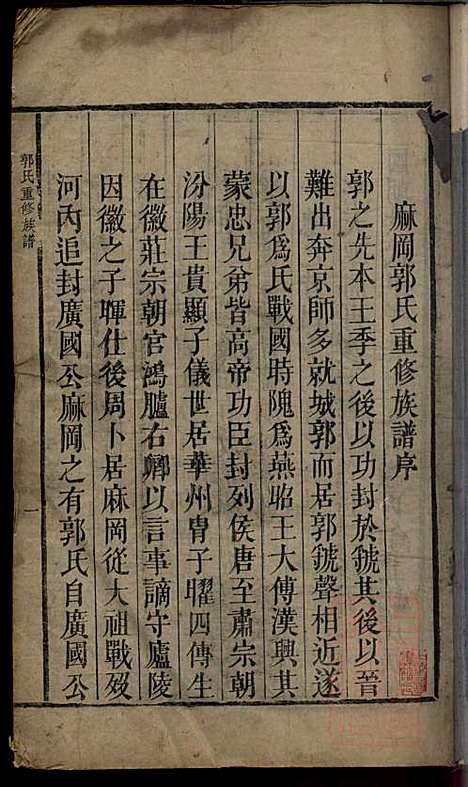 麻岡郭氏重修族譜序
郭之先本王季之後以功封於虢其後以晉
難出奔京師多就城郭而居郭虢聲相近遂
以郭爲氏戰國時隗爲燕昭王大傅漢興其
蒙忠兄弟皆高帝功臣封列侯唐至肅宗朝
汾陽王貴顯子儀世居華州冑子曜四傳生
在徽莊宗朝官鴻臚右卿以言事謫守廬陵
因徽之子暉仕後周卜居麻岡從大祖戰歿
河內追封廣國公麻岡之有郭氏自廣國公
郭氏重修族譜
一